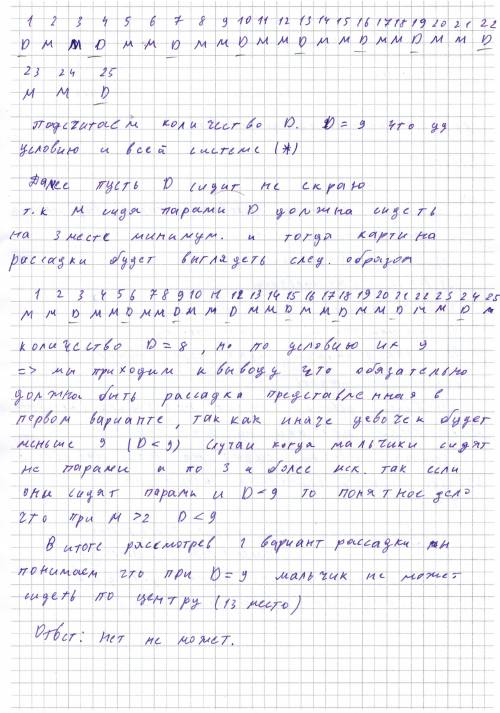 1 2 3 4 5 6 7 8 9 10 11 12 13 14 15 16 17 18 19 20 21 22
D М М D М М D М М D М М D М М D М М D М М D
23 24 25
М М D
Подсчитаем количество D. D = 9 что уд
условию и всей системе (*)
Далее пусть D сидит не скраю
т.к М сидя парами D должна сидеть
на 3 месте минимум. и тогда картина
рассадки будет выглядеть след. образом
1 2 3 4 5 6 7 8 9 10 11 12 13 14 15 16 17 18 19 20 21 22 23 24 25
М М D М М D М М D М М D М М D М М D М М D М М D М
количество D = 8, но по условию их 9
=> мы приходим к выводу что обязательно
должна быть рассадка представленная в
первом варианте, так как иначе девочек будет
меньше 9 (D < 9) Случаи когда мальчики сидят
не парами а по 3 и более иск. так если
они сидят парами и D < 9 то понятное дело
что при М >2 D < 9
В итоге рассмотрев 1 вариант рассадки мы
понимаем что при D = 9 мальчик не может
сидеть по центру (13 место)
Ответ: нет не может.